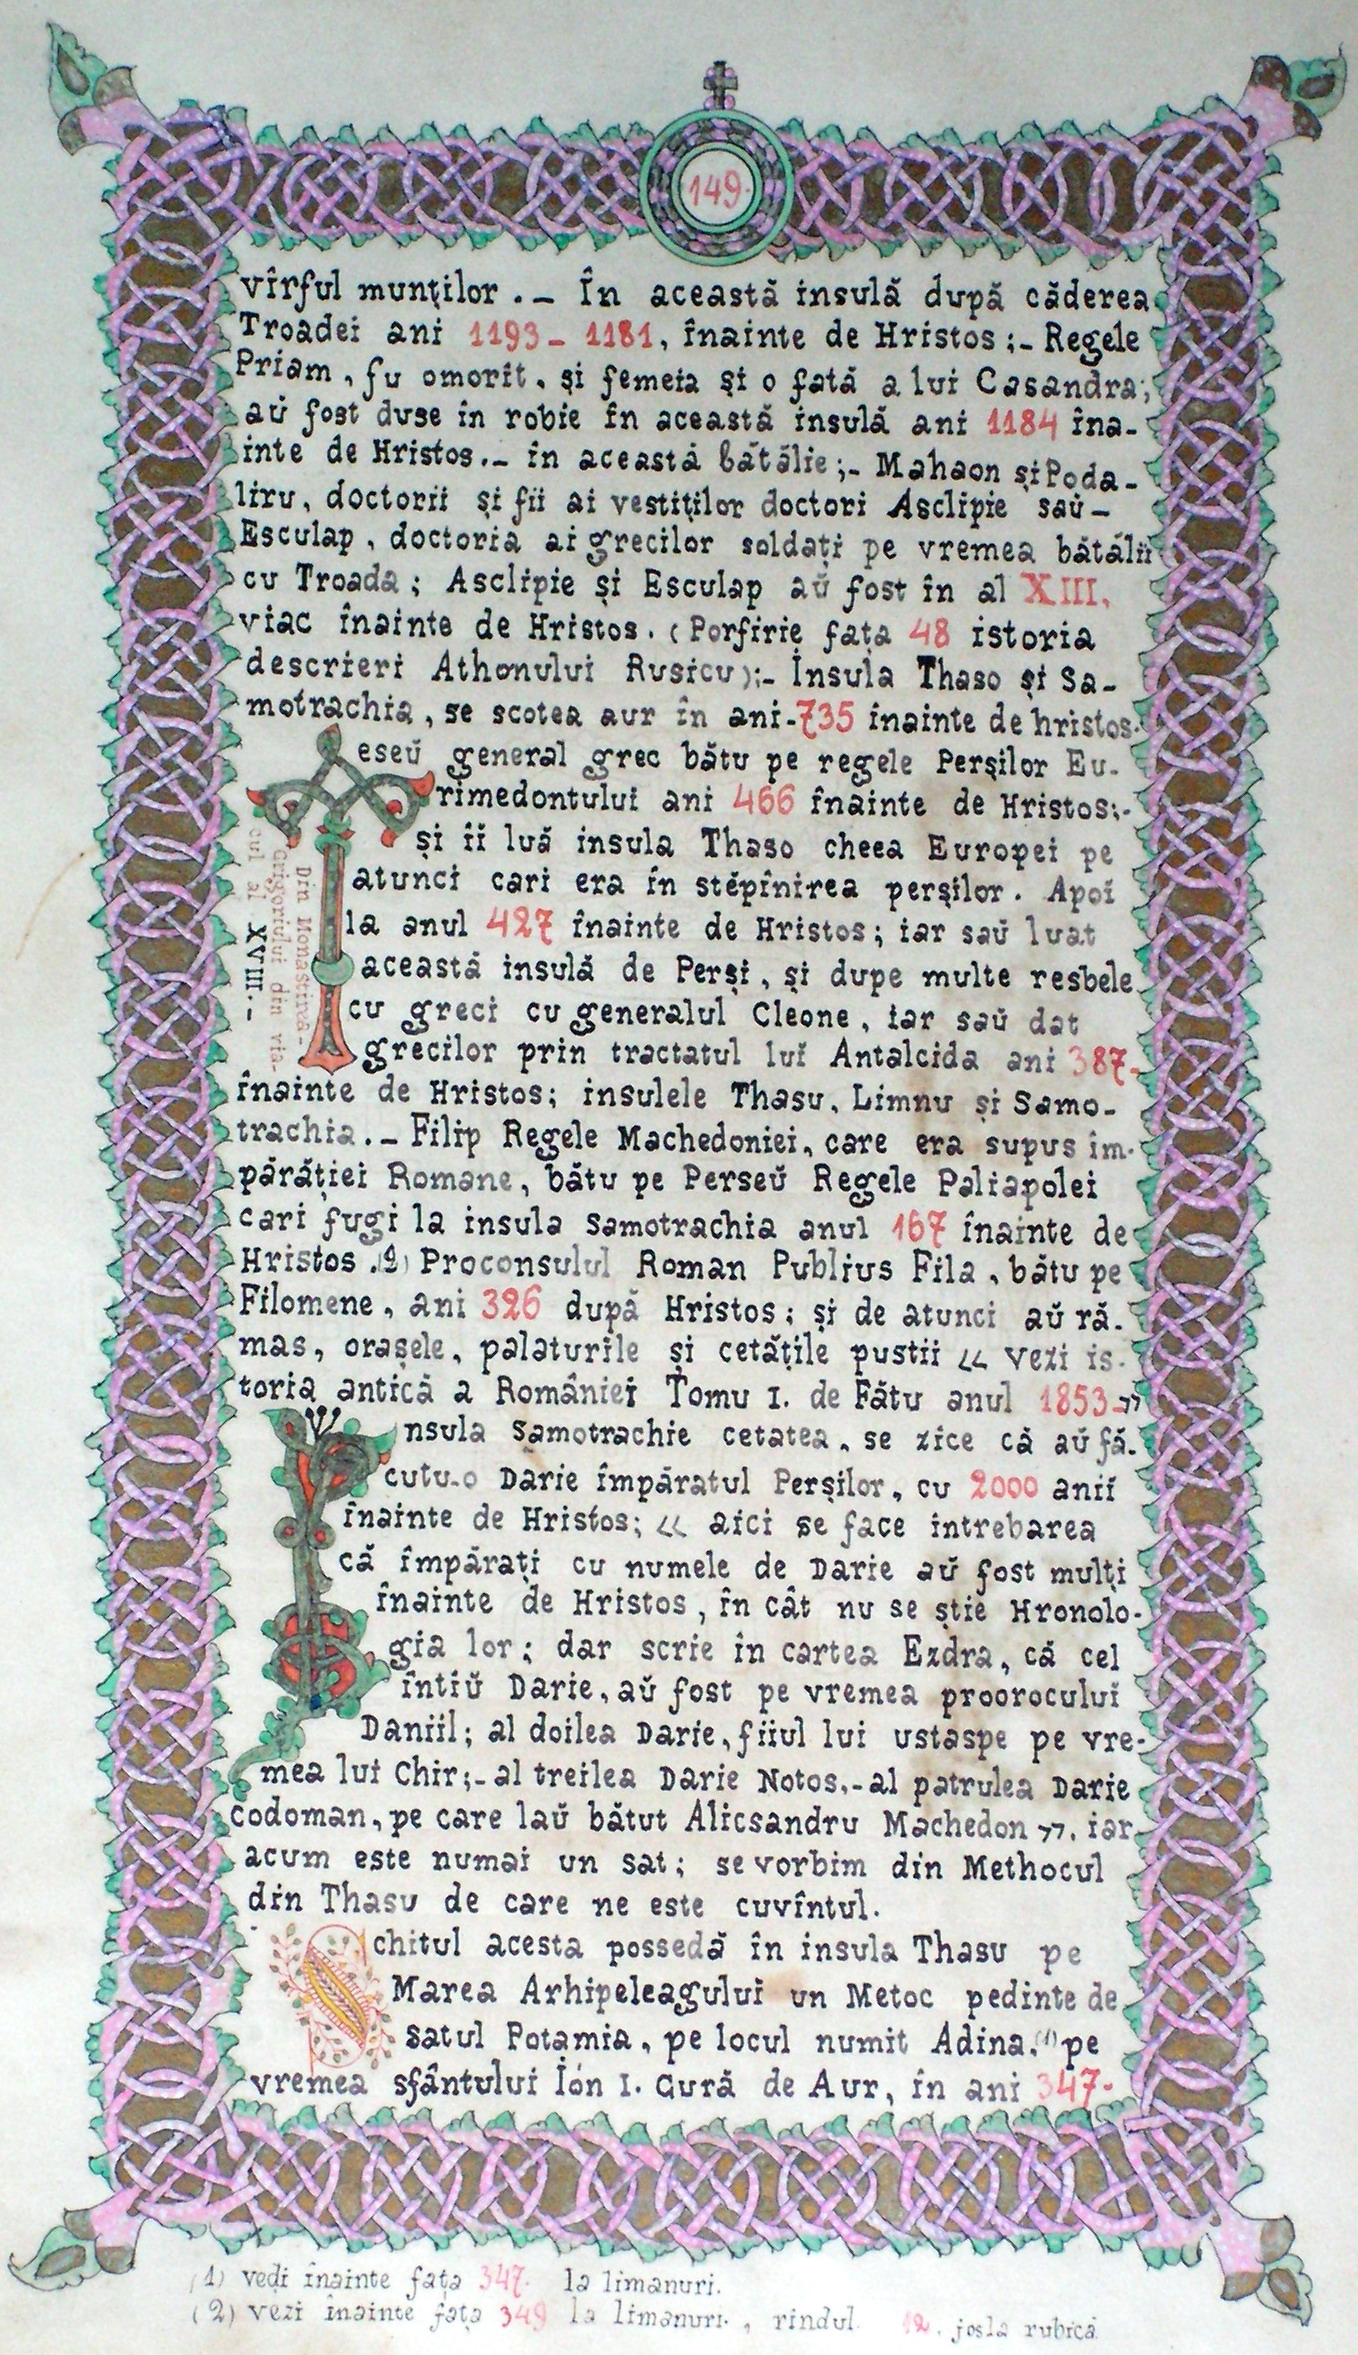 149.
vîrful munților ._ În această insulă după căderea
Troadei ani 1193_ 1181, înainte de Hristos ;_ Regele
Priam, fu omorît, și femeia și o fată a lui Casandra;
aŭ fost duse în robie în această insulă ani 1184 îna-
inte de Hristos._ în această bătălie;_ Mahaon și Poda-
liru, doctorii și fii ai vestiților doctori Asclipie saŭ_
Esculap, doctoria ai grecilor soldați pe vremea bătălii
cu Troada; Asclipie și Esculap aŭ fost în al XIII,
viac înainte de Hristos. (Porfirie fața 48 istoria
descrieri Athonului Rusicu);_ Însula Thaso și Sa-
motrachia, se scotea aur în ani-735 înainte de hristos.
Teseŭ general grec bătu pe regele Perșilor Eu-
rimedontului ani 466 înainte de Hristos;-
și îi luă insula Thaso cheea Europei pe
atunci cari era în stĕpînirea perșilor. Apoĭ
la anul 427 înainte de Hristos; iar saŭ luat
această insulă de Perși, și dupe multe resbele
cu greci cu generalul Cleone, iar saŭ dat
grecilor prin tractatul luĭ Antalcida ani 387-
înainte de Hristos; insulele Thasu, Limnu și Samo-
trachia._ Filip Regele Machedoniei, care era supus îm-
părăției Romane, bătu pe Perseŭ Regele Paliapolei
cari fugi la insula Samotrachia anul 167 înainte de
Hristos.(2) Proconsulul Roman Publius Fila, bătu pe
Filomene, ani 326 după Hristos; și de atunci aŭ ră-
mas, orașele, palaturile și cetățile pustii « vezi is-
toria antică a României Tomu I. de Fătu anul 1853_»
Insula Samotrachie cetatea, se zice că aŭ fă-
cutu-o Darie împăratul Perșilor, cu 2000 anii
înainte de Hristos; « aici se face intrebarea
că împărați cu numele de Darie aŭ fost mulți
înainte de Hristos, în cât nu se știe Hronolo-
gia lor; dar scrie în cartea Ezdra, că cel
întiŭ Darie, aŭ fost pe vremea proorocului
Daniil; al doilea Darie, fiiul lui ustaspe pe vre-
mea lui Chir;_ al treilea Darie Notos,- al patrulea Darie
codoman, pe care laŭ bătut Alicsandru Machedon », iar
acum este numai un sat; se vorbim din Methocul
din Thasu de care ne este cuvîntul.
Schitul acesta possedă în insula Thasu pe
Marea Arhipeleagului un Metoc pedinte de
satul Potamia, pe locul numit Adina,(1) pe
vremea sfântului Ion I. Gură de Aur, în ani 347-
Din Monastirea-
Grigoriului din via-
cul al XVIII.-
(1) vedi înainte fața 347. la limanuri.
(2) vezi înainte fața 349 la limanuri. , rindul 12, josla rubică.